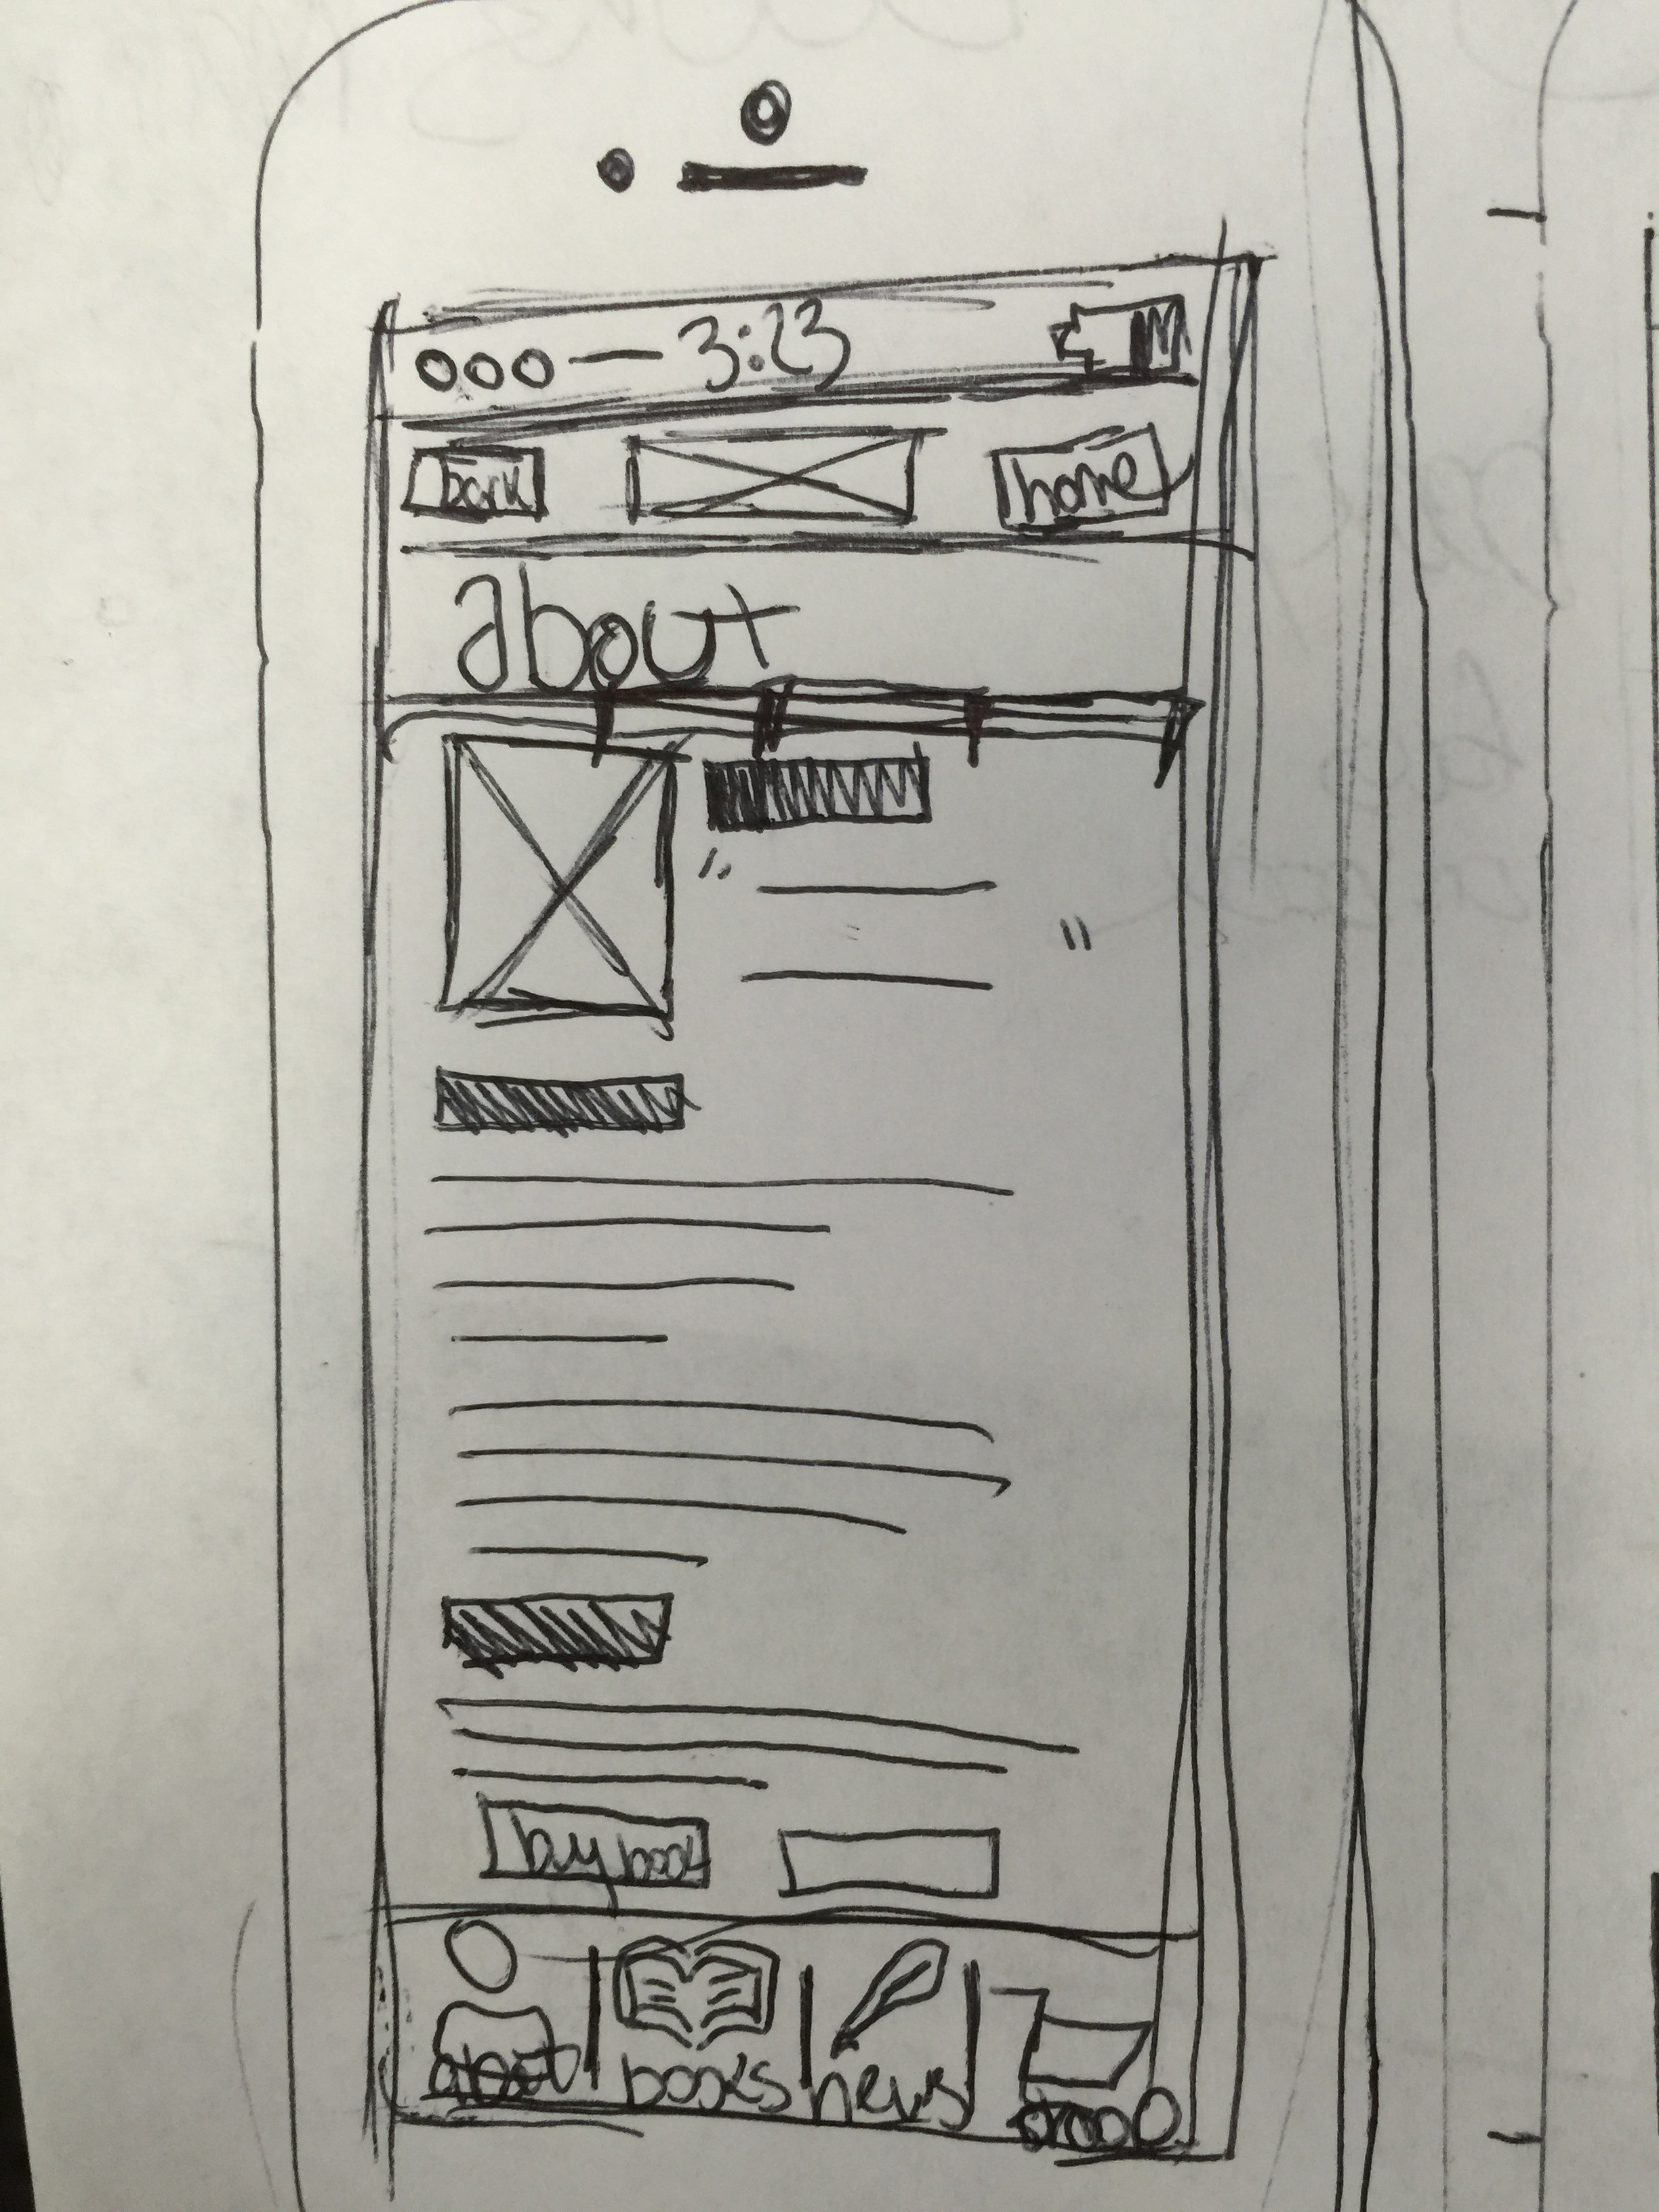 ooo — 3:23
back home
about
"
"
buy book
about books news shop